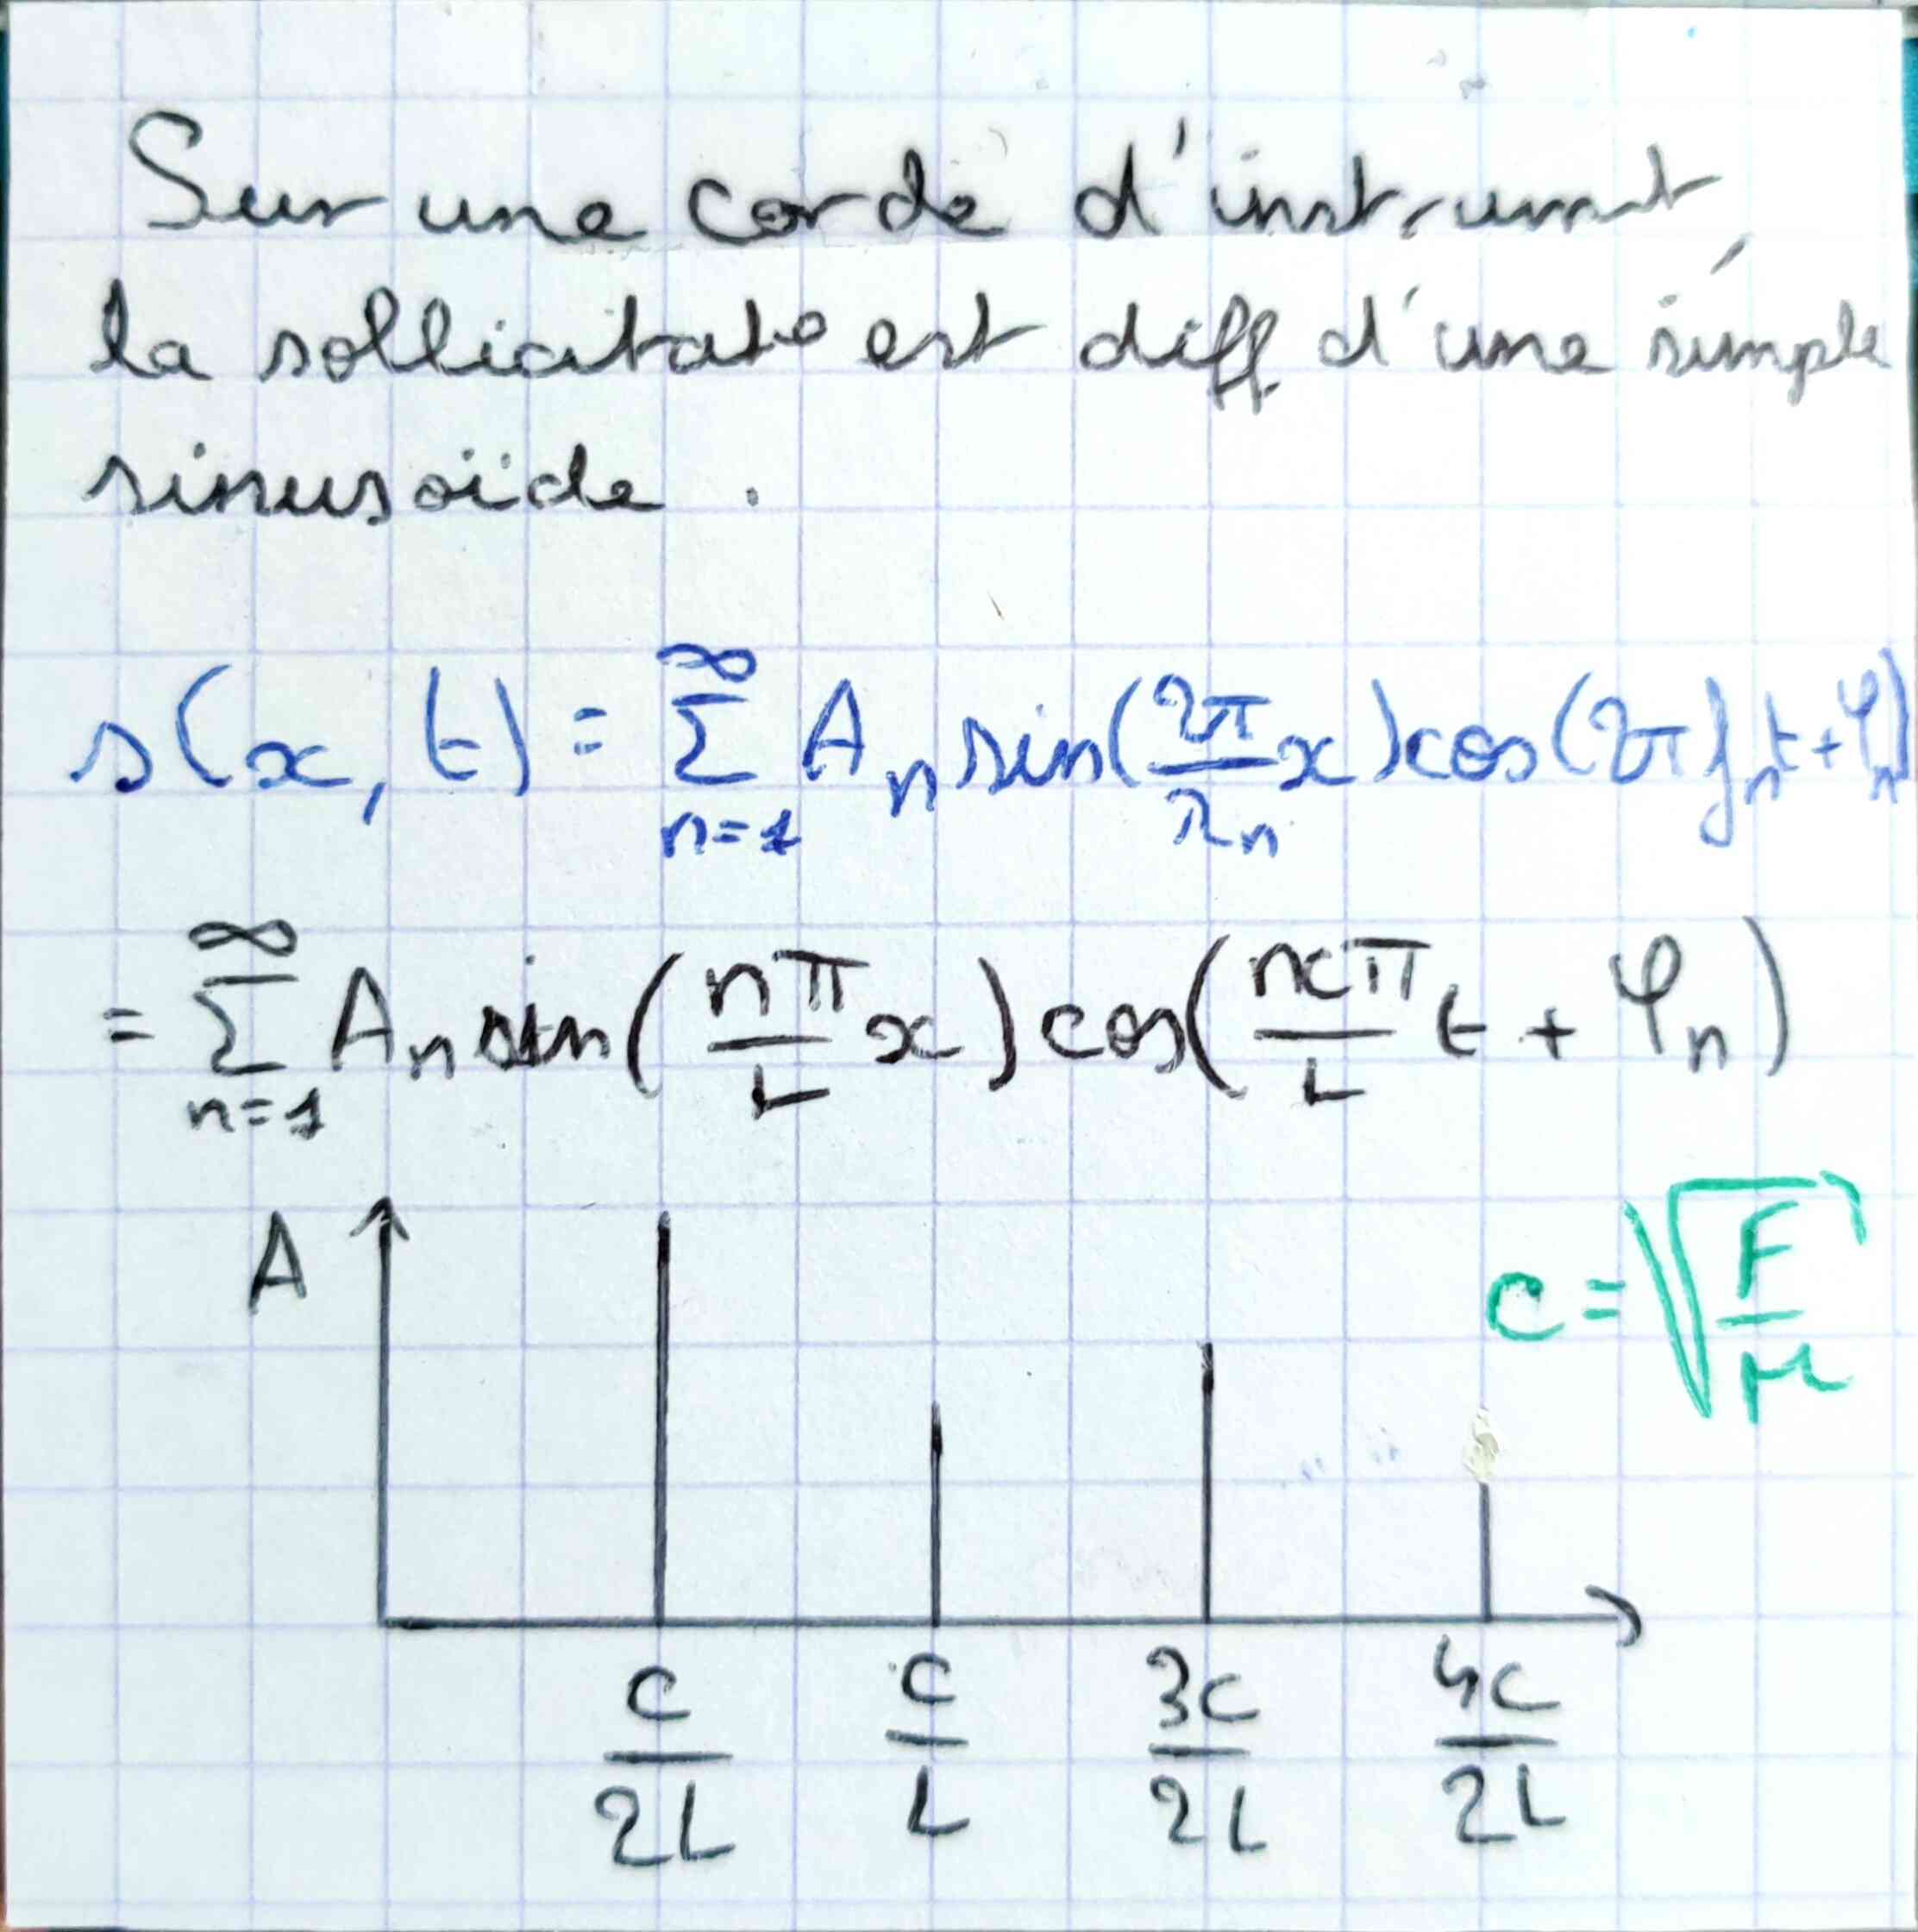 Sur une corde d'instrumt,
la sollicitat° est diff d'une simple
sinusoïde .
s(x, t) = ∑_{n=1}^{∞} A_n sin(\frac{2π}{λ_n}x)cos(2π f_n t + φ_n)
= ∑_{n=1}^{∞} A_n sin(\frac{nπ}{L}x)cos(\frac{ncπ}{L}t + φ_n)
A
c = \sqrt{\frac{F}{μ}}
\frac{c}{2L} \frac{c}{L} \frac{3c}{2L} \frac{4c}{2L}